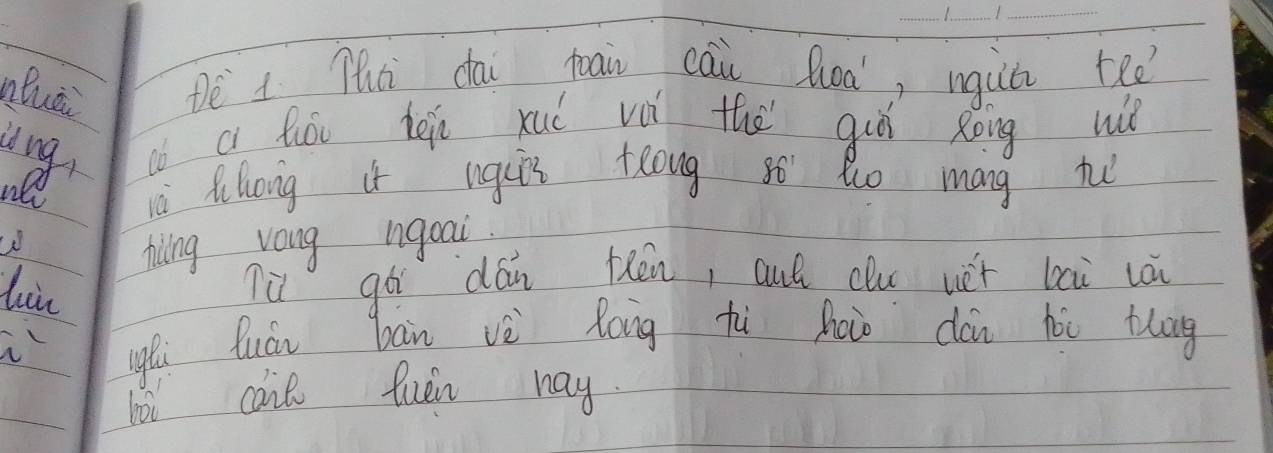 Đề 1: Thời đại toàn cầu hoá, người trẻ
nhuài
có cơ hội tiếp xúc với thế giới rộng mở
ứng,
và không ít người trong số họ mang tư
tưởng vọng ngoại.
Từ gợi dẫn trên, anh chị viết bài văn
nghị luận bàn về lòng tự hào dân tộc trong
bối cảnh hiện nay.